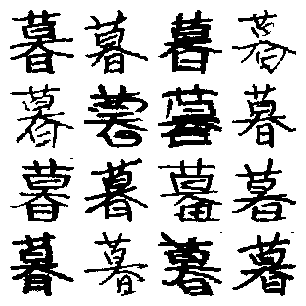 暮暮暮暮
暮暮暮暮
暮暮暮暮
暮暮暮暮